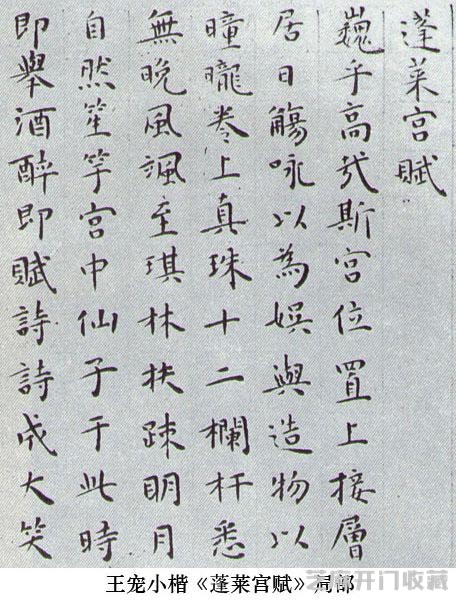 蓬莱宫賦
巍乎高哉斯宫位置上接層
居日觴咏以為娯與造物以
曈曨卷上真珠十二欄杆悉
無晚風颯至琪林扶踈明月
自然笙竽宫中仙子于此時
即舉酒醉即賦詩詩成大笑
王宠小楷《蓬莱宫赋》局部
芝麻开门收藏